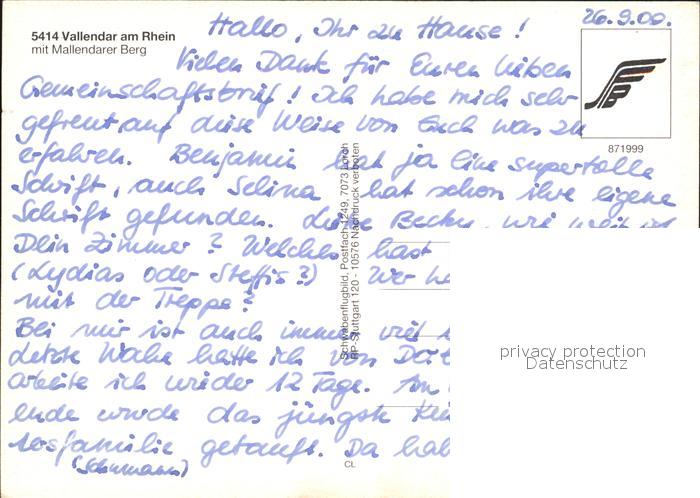 5414 Vallendar am Rhein
mit Mallendarer Berg
26.9.00.
Hallo, Ihr zu Hause!
Vielen Dank für Euren lieben
Gemeinschaftsbrief! Ich habe mich sehr
gefreut, auf diese Weise von Euch was zu
erfahren. Benjamin hat ja eine supertolle
Schrift, auch Selina hat schon ihre eigene
Schrift gefunden. Liebe Becky, wie weit ist
Dein Zimmer? Welches hast
(Lydias oder Steffis?) Wer
mit der Treppe?
Bei mir ist auch immer viel
Letzte Woche hatte ich von
arbeite ich wieder 12 Tage. Am
ende wurde das jüngste
tosfamilie getauft. Da
(Schumann)
871999
Schwabenflugbild, Postfach 1249, 7073 Lorch
RP-Stuttgart 120 - 10576 Nachdruck verboten
CL
privacy protection
Datenschutz